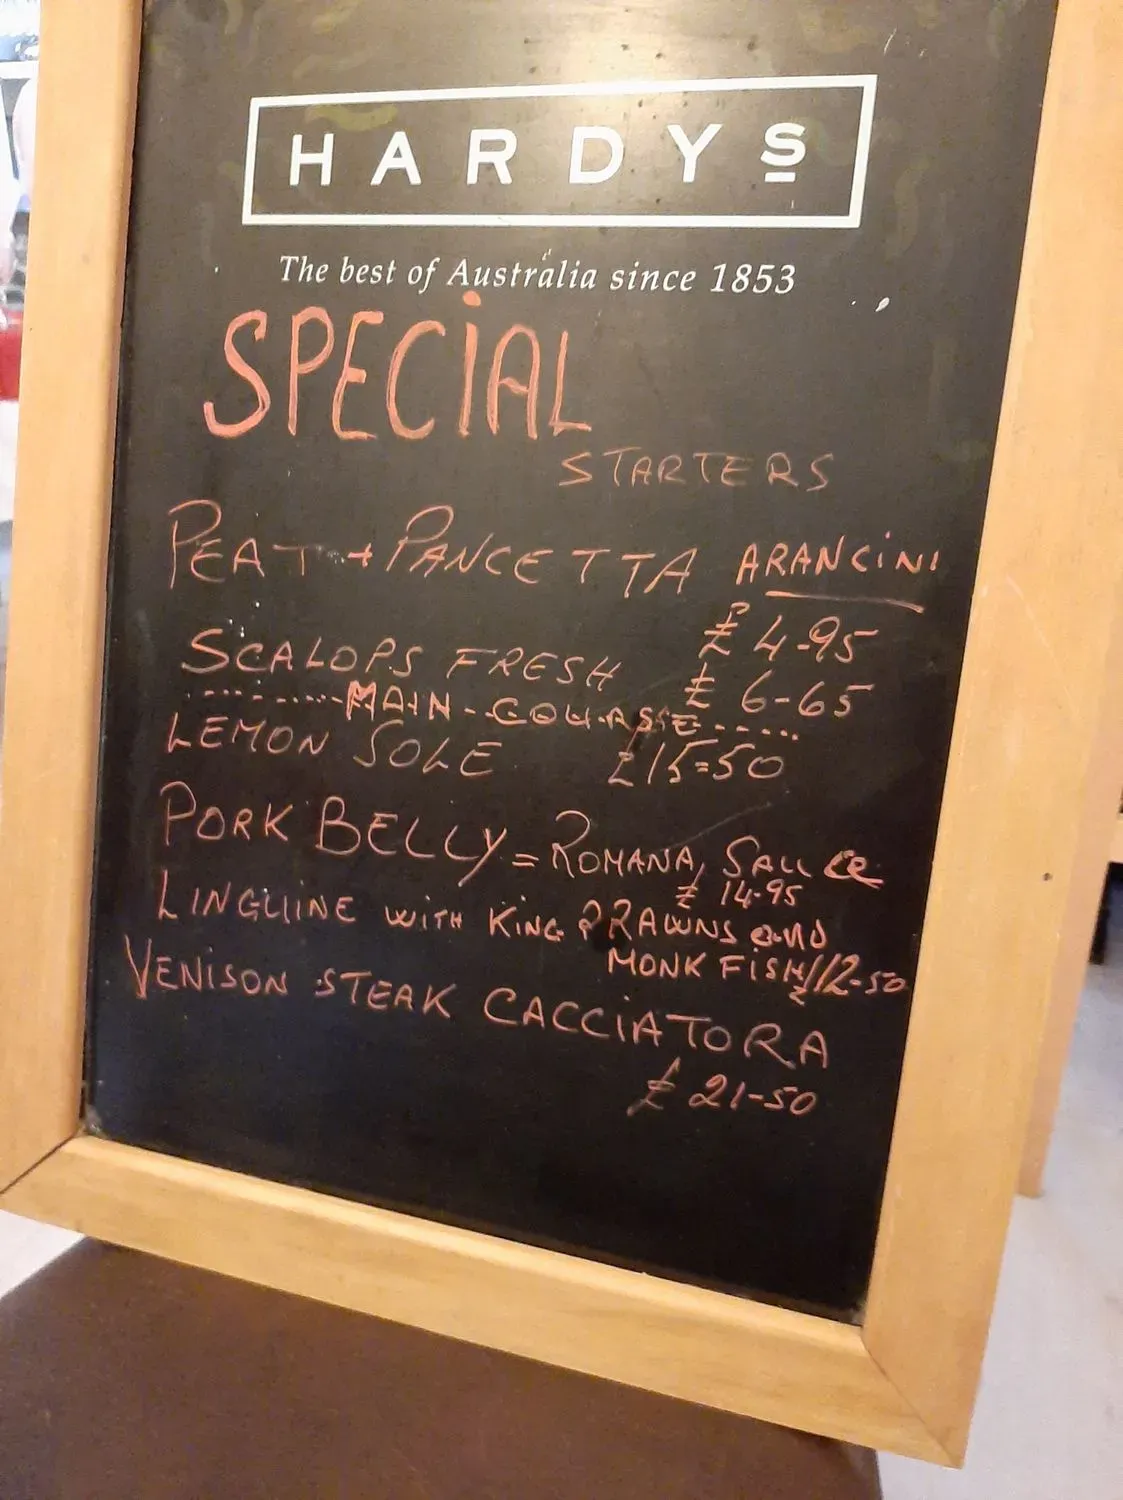 HARDYS
The best of Australia since 1853
SPECIAL
STARTERS
PEAT + PANCETTA ARANCINI
£ 4-95
SCALOPS FRESH £ 6-65
MAIN-COURSE
LEMON SOLE £15=50
PORK BELLY = ROMANA, SAUCE
£ 14-95
LINGUINE WITH KING PRAWNS and
MONK FISH £12-50
VENISON STEAK CACCIATORA
£ 21-50